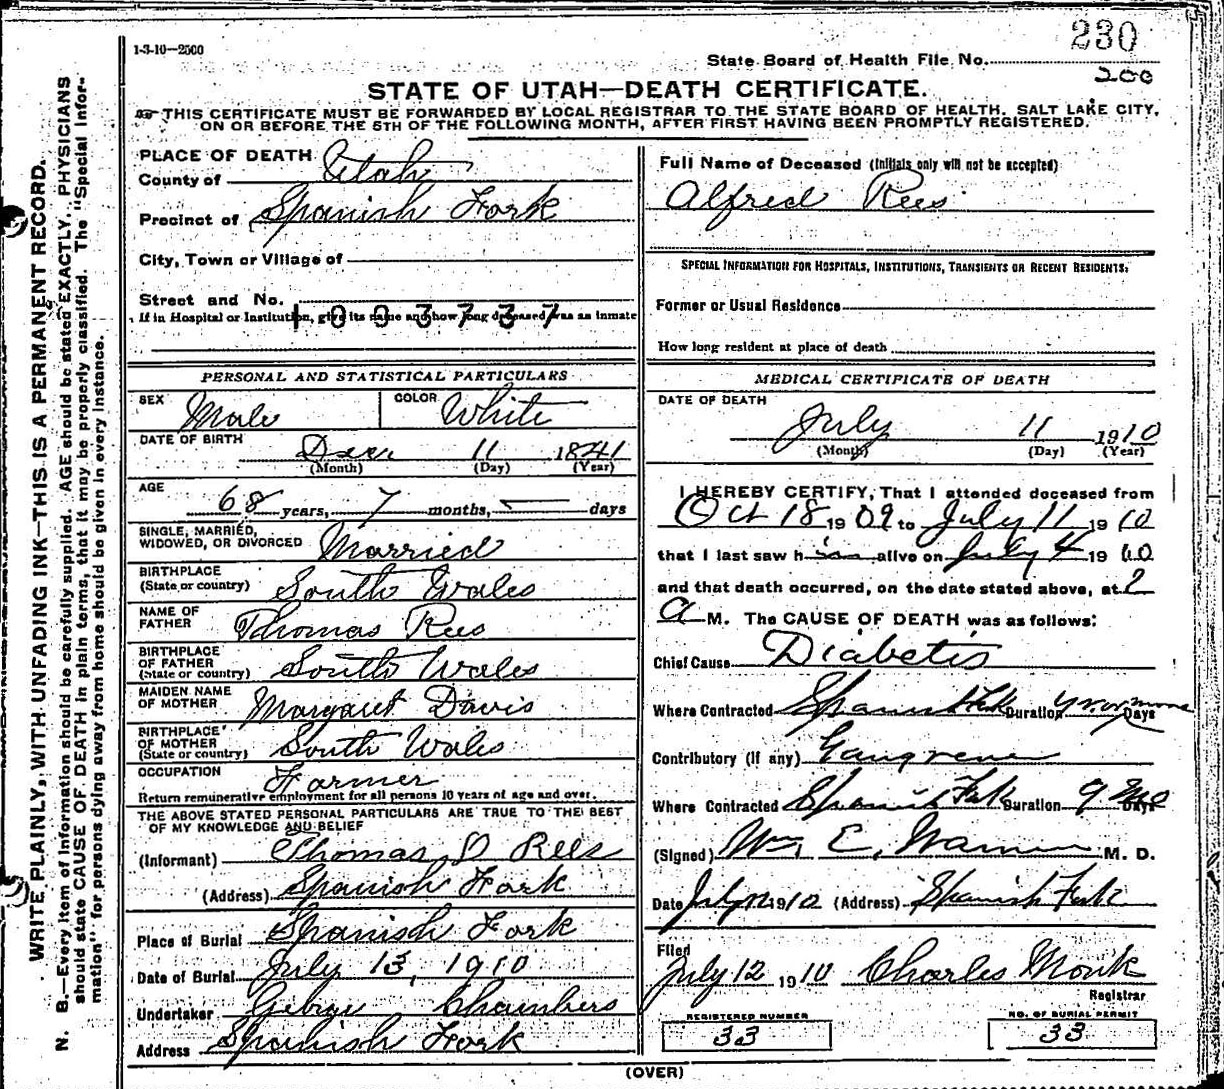 230
1-3-10-2500
State Board of Health File No.
200
STATE OF UTAH—DEATH CERTIFICATE.
THIS CERTIFICATE MUST BE FORWARDED BY LOCAL REGISTRAR TO THE STATE BOARD OF HEALTH, SALT LAKE CITY,
ON OR BEFORE THE 5TH OF THE FOLLOWING MONTH, AFTER FIRST HAVING BEEN PROMPTLY REGISTERED.
WRITE PLAINLY, WITH UNFADING INK—THIS IS A PERMANENT RECORD.
N. B.—Every item of Information should be carefully supplied. AGE should be stated EXACTLY. PHYSICIANS
should state CAUSE OF DEATH in plain terms, that it may be properly classified. The "Special Infor-
mation" for persons dying away from home should be given in every instance.
PLACE OF DEATH
County of Utah
Precinct of Spanish Fork
City, Town or Village of
Street and No.
1003737
If in Hospital or Institution, give its name and how long deceased was as inmate
PERSONAL AND STATISTICAL PARTICULARS
SEX Male COLOR White
DATE OF BIRTH Dec 11 1841
(Month) (Day) (Year)
AGE 68 years, 7 months, — days
SINGLE, MARRIED,
WIDOWED, OR DIVORCED Married
BIRTHPLACE
(State or country) South Wales
NAME OF
FATHER Thomas Rees
BIRTHPLACE
OF FATHER
(State or country) South Wales
MAIDEN NAME
OF MOTHER Margaret Davis
BIRTHPLACE
OF MOTHER
(State or country) South Wales
OCCUPATION Farmer
Return remunerative employment for all persons 10 years of age and over.
THE ABOVE STATED PERSONAL PARTICULARS ARE TRUE TO THE BEST
OF MY KNOWLEDGE AND BELIEF
(Informant) Thomas D Rees
(Address) Spanish Fork
Place of Burial Spanish Fork
Date of Burial July 13, 1910
Undertaker George Chambers
Address Spanish Fork
Full Name of Deceased (Initials only will not be accepted)
Alfred Rees
SPECIAL INFORMATION FOR HOSPITALS, INSTITUTIONS, TRANSIENTS OR RECENT RESIDENTS.
Former or Usual Residence
How long resident at place of death
MEDICAL CERTIFICATE OF DEATH
DATE OF DEATH
July 11 1910
(Month) (Day) (Year)
I HEREBY CERTIFY, That I attended deceased from
Oct 18 1909 to July 11 1910
that I last saw him alive on July 4 1910
and that death occurred, on the date stated above, at 2
A M. The CAUSE OF DEATH was as follows:
Chief Cause Diabetis
Where Contracted Spanish Fk Duration yr or more Days
Contributory (if any) Gangrene
Where Contracted Spanish Fork Duration 9 Mos Days
(Signed) Wm. E. Warner M. D.
Date July 12 1910 (Address) Spanish Fork
Filed
July 12 1910 Charles Monk
Registrar
REGISTERED NUMBER
33
NO. OF BURIAL PERMIT
33
(OVER)